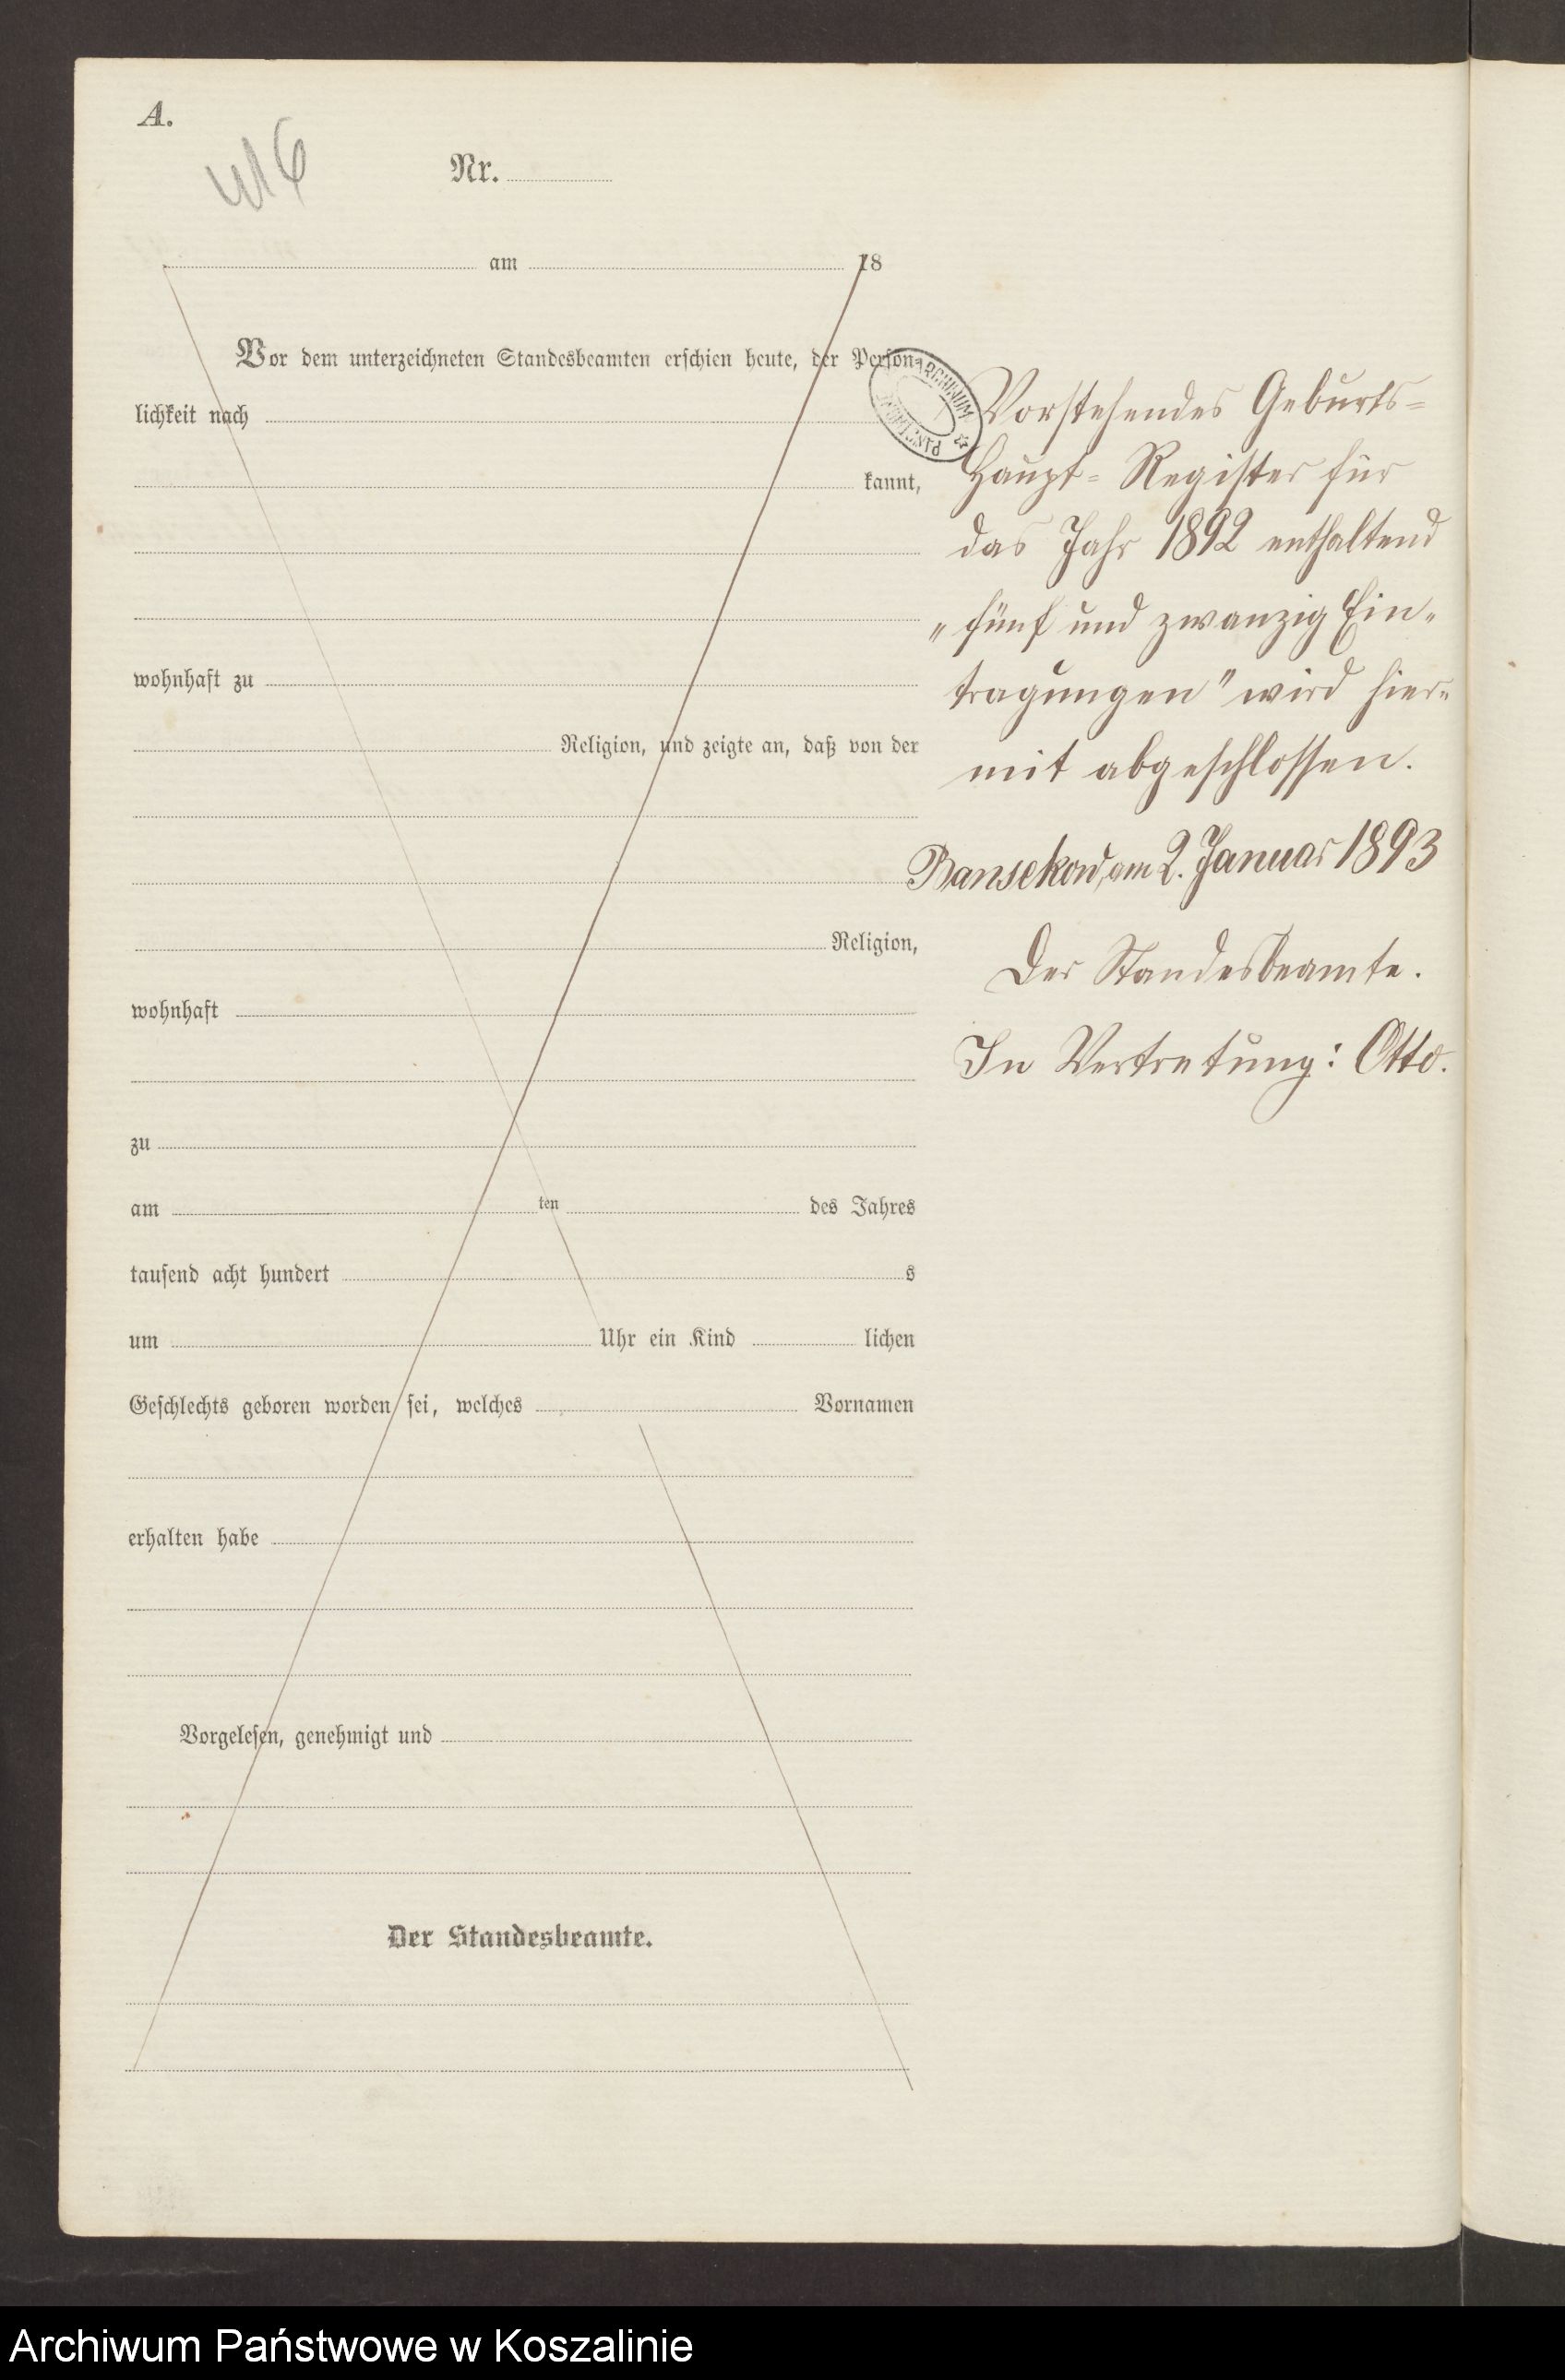 A.
Nr.
am 18
Vor dem unterzeichneten Standesbeamten erschien heute, der Person-
lichkeit nach
kannt,
wohnhaft zu
Religion, und zeigte an, daß von der
Religion,
wohnhaft
zu
am ten des Jahres
tausend acht hundert s
um Uhr ein Kind lichen
Geschlechts geboren worden sei, welches Vornamen
erhalten habe
Vorgelesen, genehmigt und
Der Standesbeamte.
ARCHIWUM
Vorstehendes Geburts=
Haupt= Register für
das Jahr 1892 enthaltend
„fünf und zwanzig Ein„
tragungen" wird hier„
mit abgeschlossen.
Bansekow, am 2. Januar 1893
Der Standesbeamte.
In Vertretung: Otto.
Archiwum Państwowe w Koszalinie